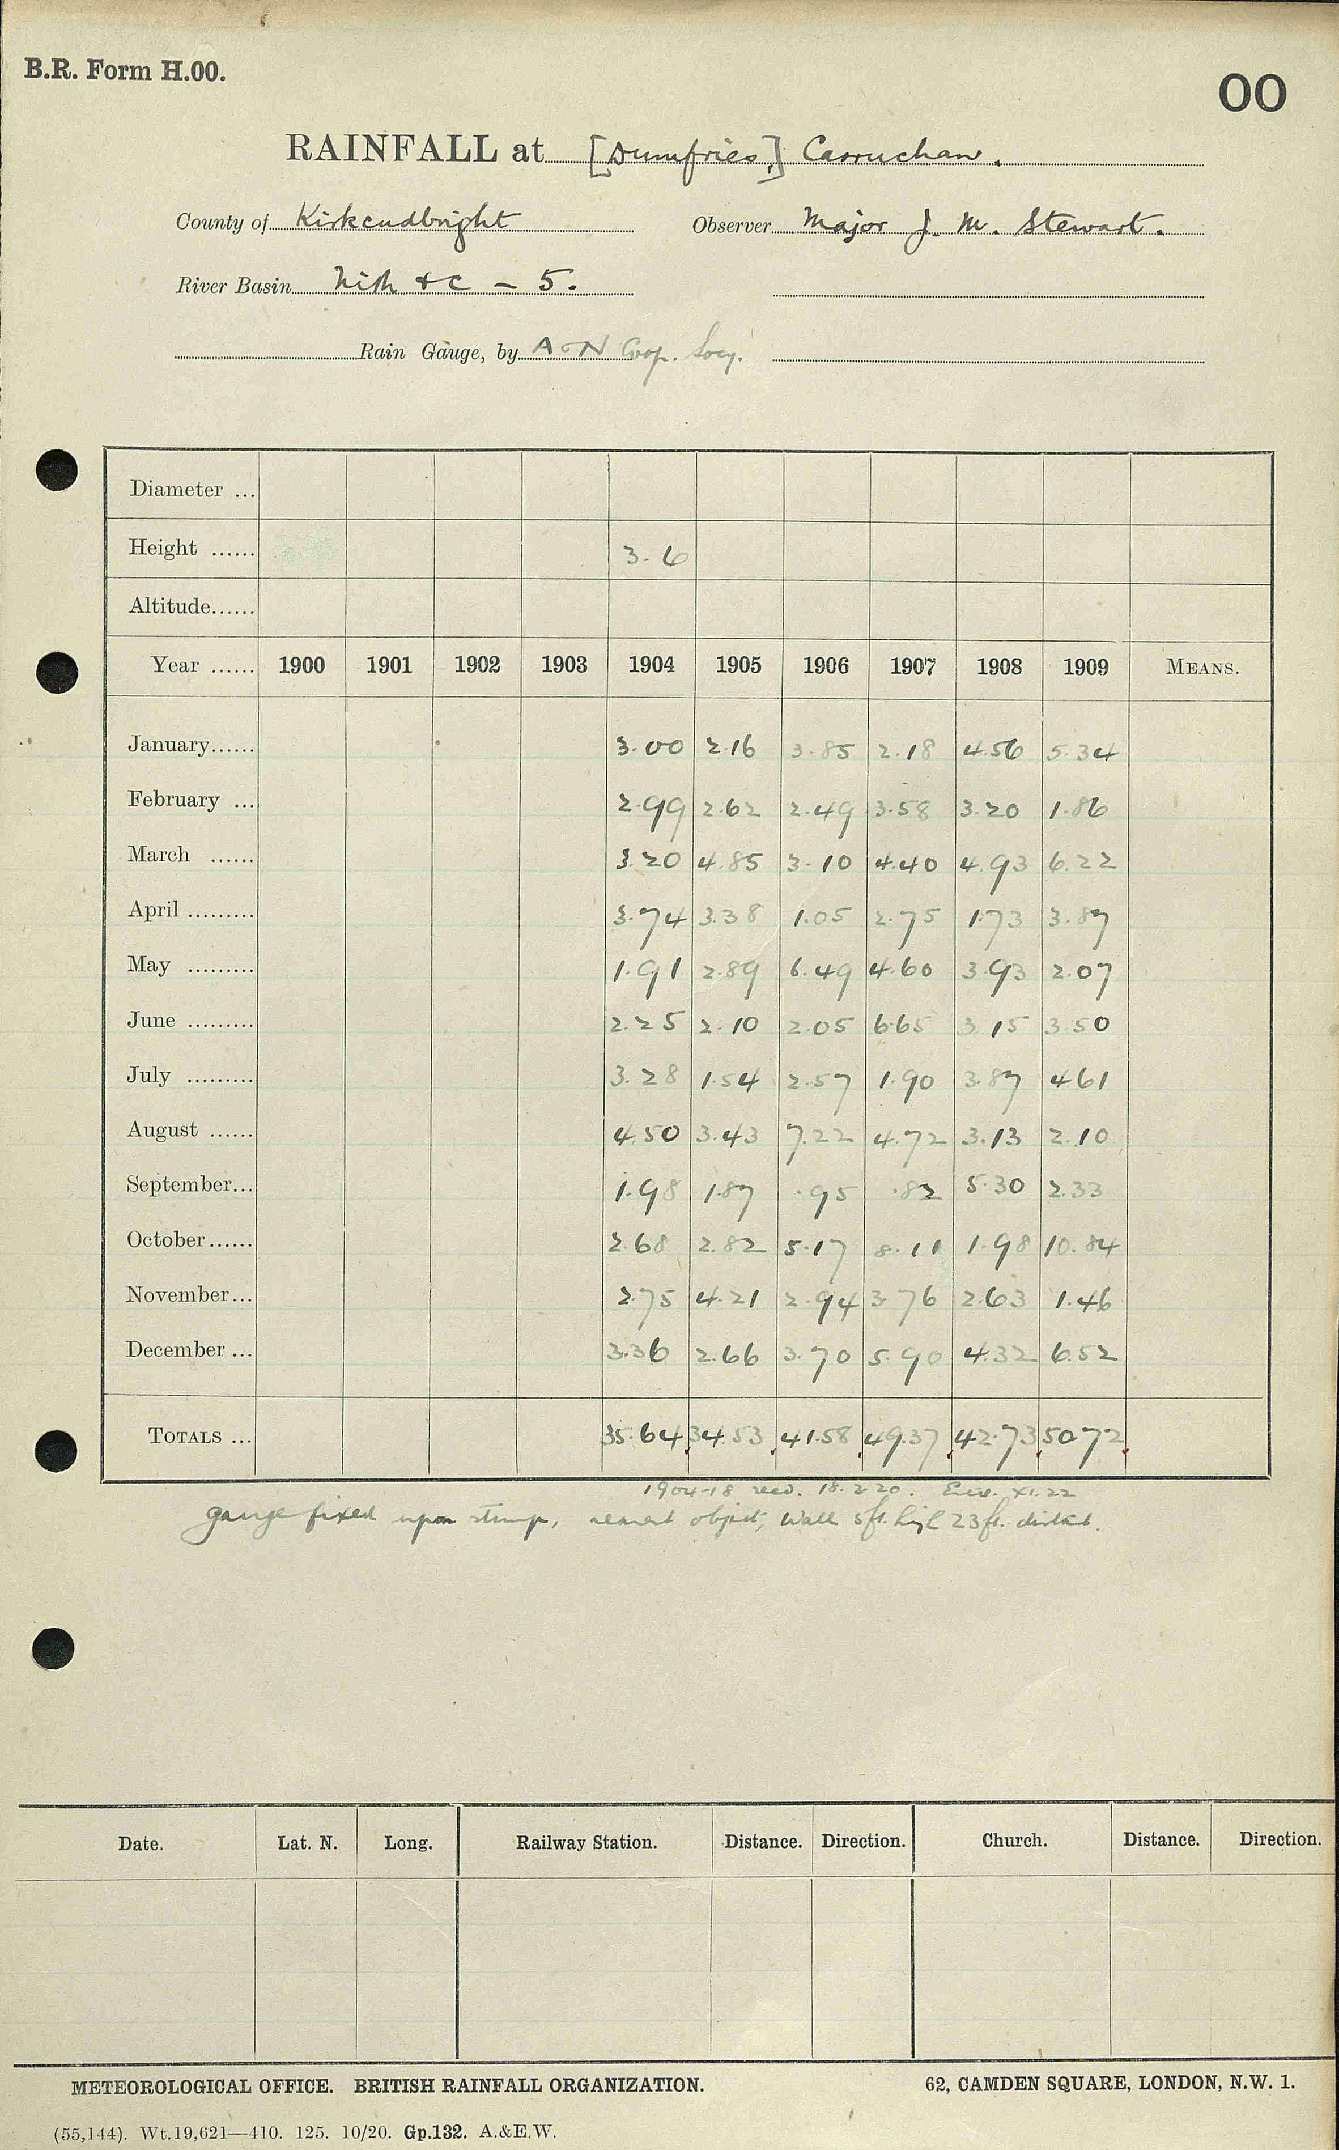 B.R. Form H.00.
00
RAINFALL at [Dumfries,] Carruchan.
County of Kirkcudbright Observer Major J. M. Stewart.
River Basin Nith &c - 5.
Rain Gauge, by A & N Coop. Socy.
Diameter ...
Height ...... 3-6
Altitude......
Year ...... 1900 1901 1902 1903 1904 1905 1906 1907 1908 1909 MEANS.
January...... 3.00 2.16 3.85 2.18 4.56 5.34
February ... 2.99 2.62 2.49 3.58 3.20 1.86
March ...... 3.20 4.85 3.10 4.40 4.93 6.22
April ......... 3.74 3.38 1.05 2.75 1.73 3.87
May ......... 1.91 2.89 6.49 4.60 3.93 2.07
June ......... 2.25 2.10 2.05 6.65 3.15 3.50
July ......... 3.28 1.54 2.57 1.90 3.87 4.61
August ...... 4.50 3.43 7.22 4.72 3.13 2.10
September... 1.98 1.87 .95 .82 5.30 2.33
October...... 2.68 2.82 5.17 8.11 1.98 10.84
November... 2.75 4.21 2.94 3.76 2.63 1.46
December ... 3.36 2.66 3.70 5.90 4.32 6.52
TOTALS ... 35.64 34.53 41.58 49.37 42.73 50.72
1904-18 recd. 18.2.20. XI.22
gauge fixed upon stump, nearest object, wall 5ft. high 23ft. distant.
Date. Lat. N. Long. Railway Station. Distance. Direction. Church. Distance. Direction.
METEOROLOGICAL OFFICE. BRITISH RAINFALL ORGANIZATION. 62, CAMDEN SQUARE, LONDON, N.W. 1.
(55,144). Wt.19,621—410. 125. 10/20. Gp.132. A.&E.W.